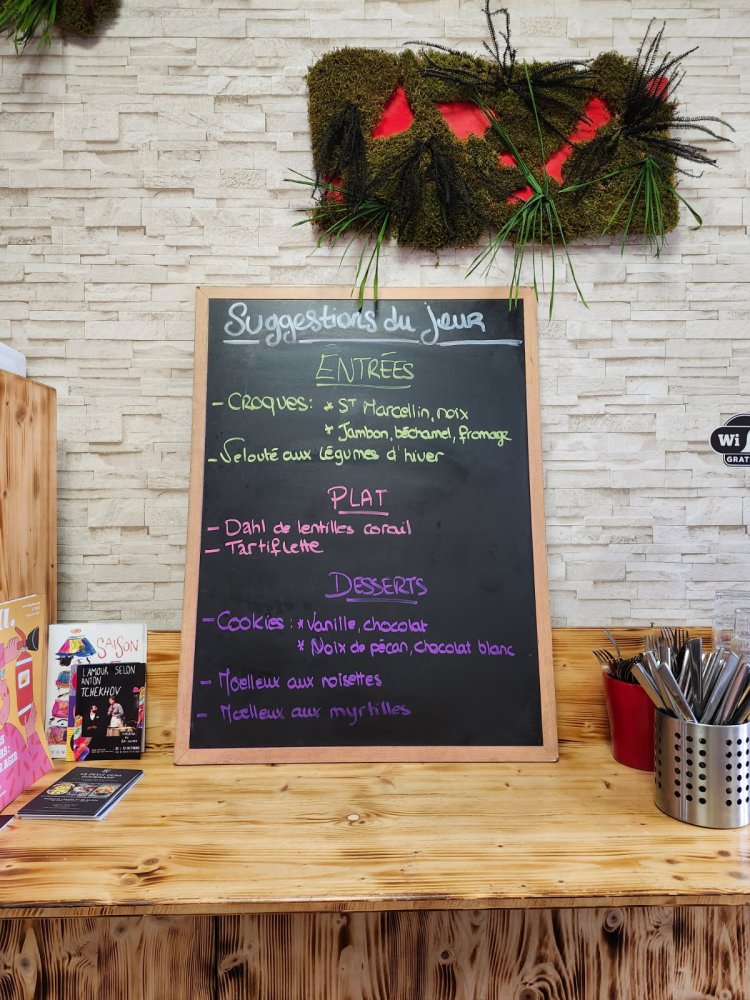 Suggestions du jour
ENTRÉES
- CROQUES: * ST Marcellin, noix
* Jambon, béchamel, fromage
- Velouté aux légumes d'hiver
PLAT
- Dahl de lentilles corail
- Tartiflette
DESSERTS
- Cookies : * Vanille, chocolat
* Noix de pécan, chocolat blanc
- Moelleux aux noisettes
- Moelleux aux myrtilles
Wi
GRAT
SAISON
L'AMOUR SELON
ANTON
TCHEKHOV